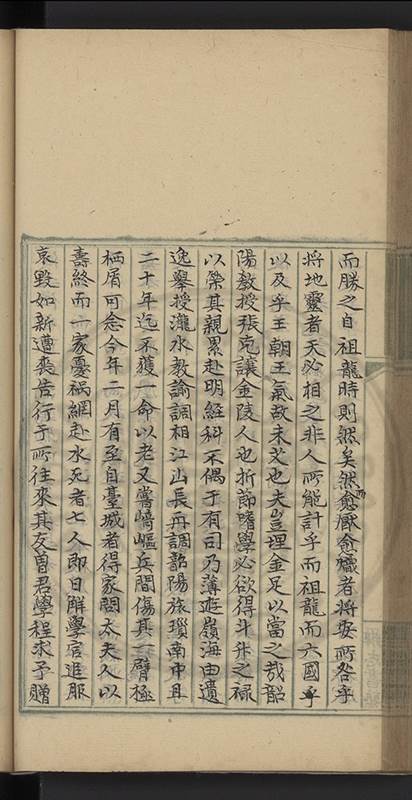 而勝之自祖龍時則然矣然愈厭愈熾者將安所咎乎
將地靈者天必相之非人所能計乎而祖龍而六國乎
以及乎王朝王氣故未艾也夫豈埋金足以當之哉韶
陽教授張克讓金陵人也折節嗜學必欲得斗升之祿
以榮其親累赴明經科不偶于有司乃薄遊嶺海由遺
逸舉授瀧水教諭調相江山長再調韶陽旅瑣南中且
二十年迄不獲一命以老又嘗崎嶇兵間傷其一臂極
栖屑可念今年二月有至自臺城者得家問太夫人以
壽終而一家憂禍網赴水死者七人即日解學官追服
哀毀如新遭喪告行于所往來其友曾君學程求予贈